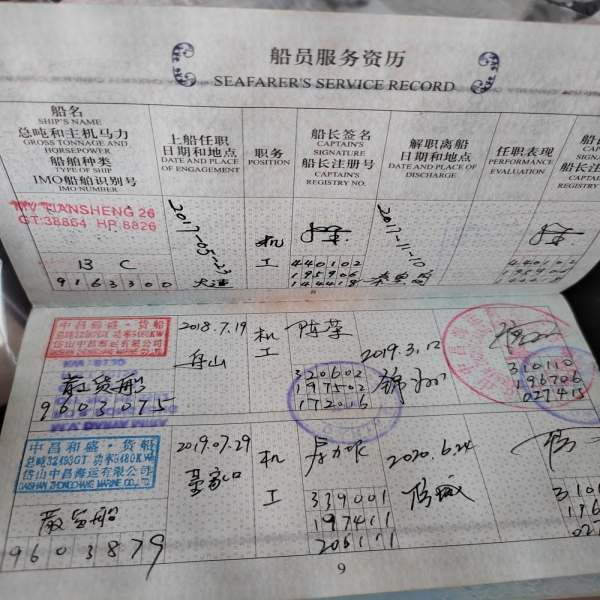 船员服务资历
SEAFARER'S SERVICE RECORD
船名
SHIP'S NAME
总吨和主机马力
GROSS TONNAGE AND
HORSEPOWER
船舶种类
TYPE OF SHIP
IMO船舶识别号
IMO NUMBER
上船任职
日期和地点
DATE AND PLACE
OF ENGAGEMENT
职务
POSITION
船长签名
CAPTAIN'S
SIGNATURE
船长注册号
CAPTAIN'S
REGISTRY NO.
解职离船
日期和地点
DATE AND PLACE OF
DISCHARGE
任职表现
PERFORMANCE
EVALUATION
CAPTAIN'S
船长注
CAPTAIN'S
REGISTRY
MV TIANSHENG 26
GT:38864 HP:8826
9163300
2017-05-23
大连
机工
440102
195906
144418
2017-11-10
秦皇岛
440102
8
中昌和盛·货船
散货船
9603075
2018.7.19
舟山
机工
320602
197502
172016
2019.3.12
310110
196706
027415
中昌和盛·货船
总吨32193GT 功率9480KW
岱山中昌海运有限公司
DAISHAN ZHONGCHANG MARINE CO.,LTD.
散货船
9603879
2019.07.29
机工
339001
197411
206111
2020.6.24
9